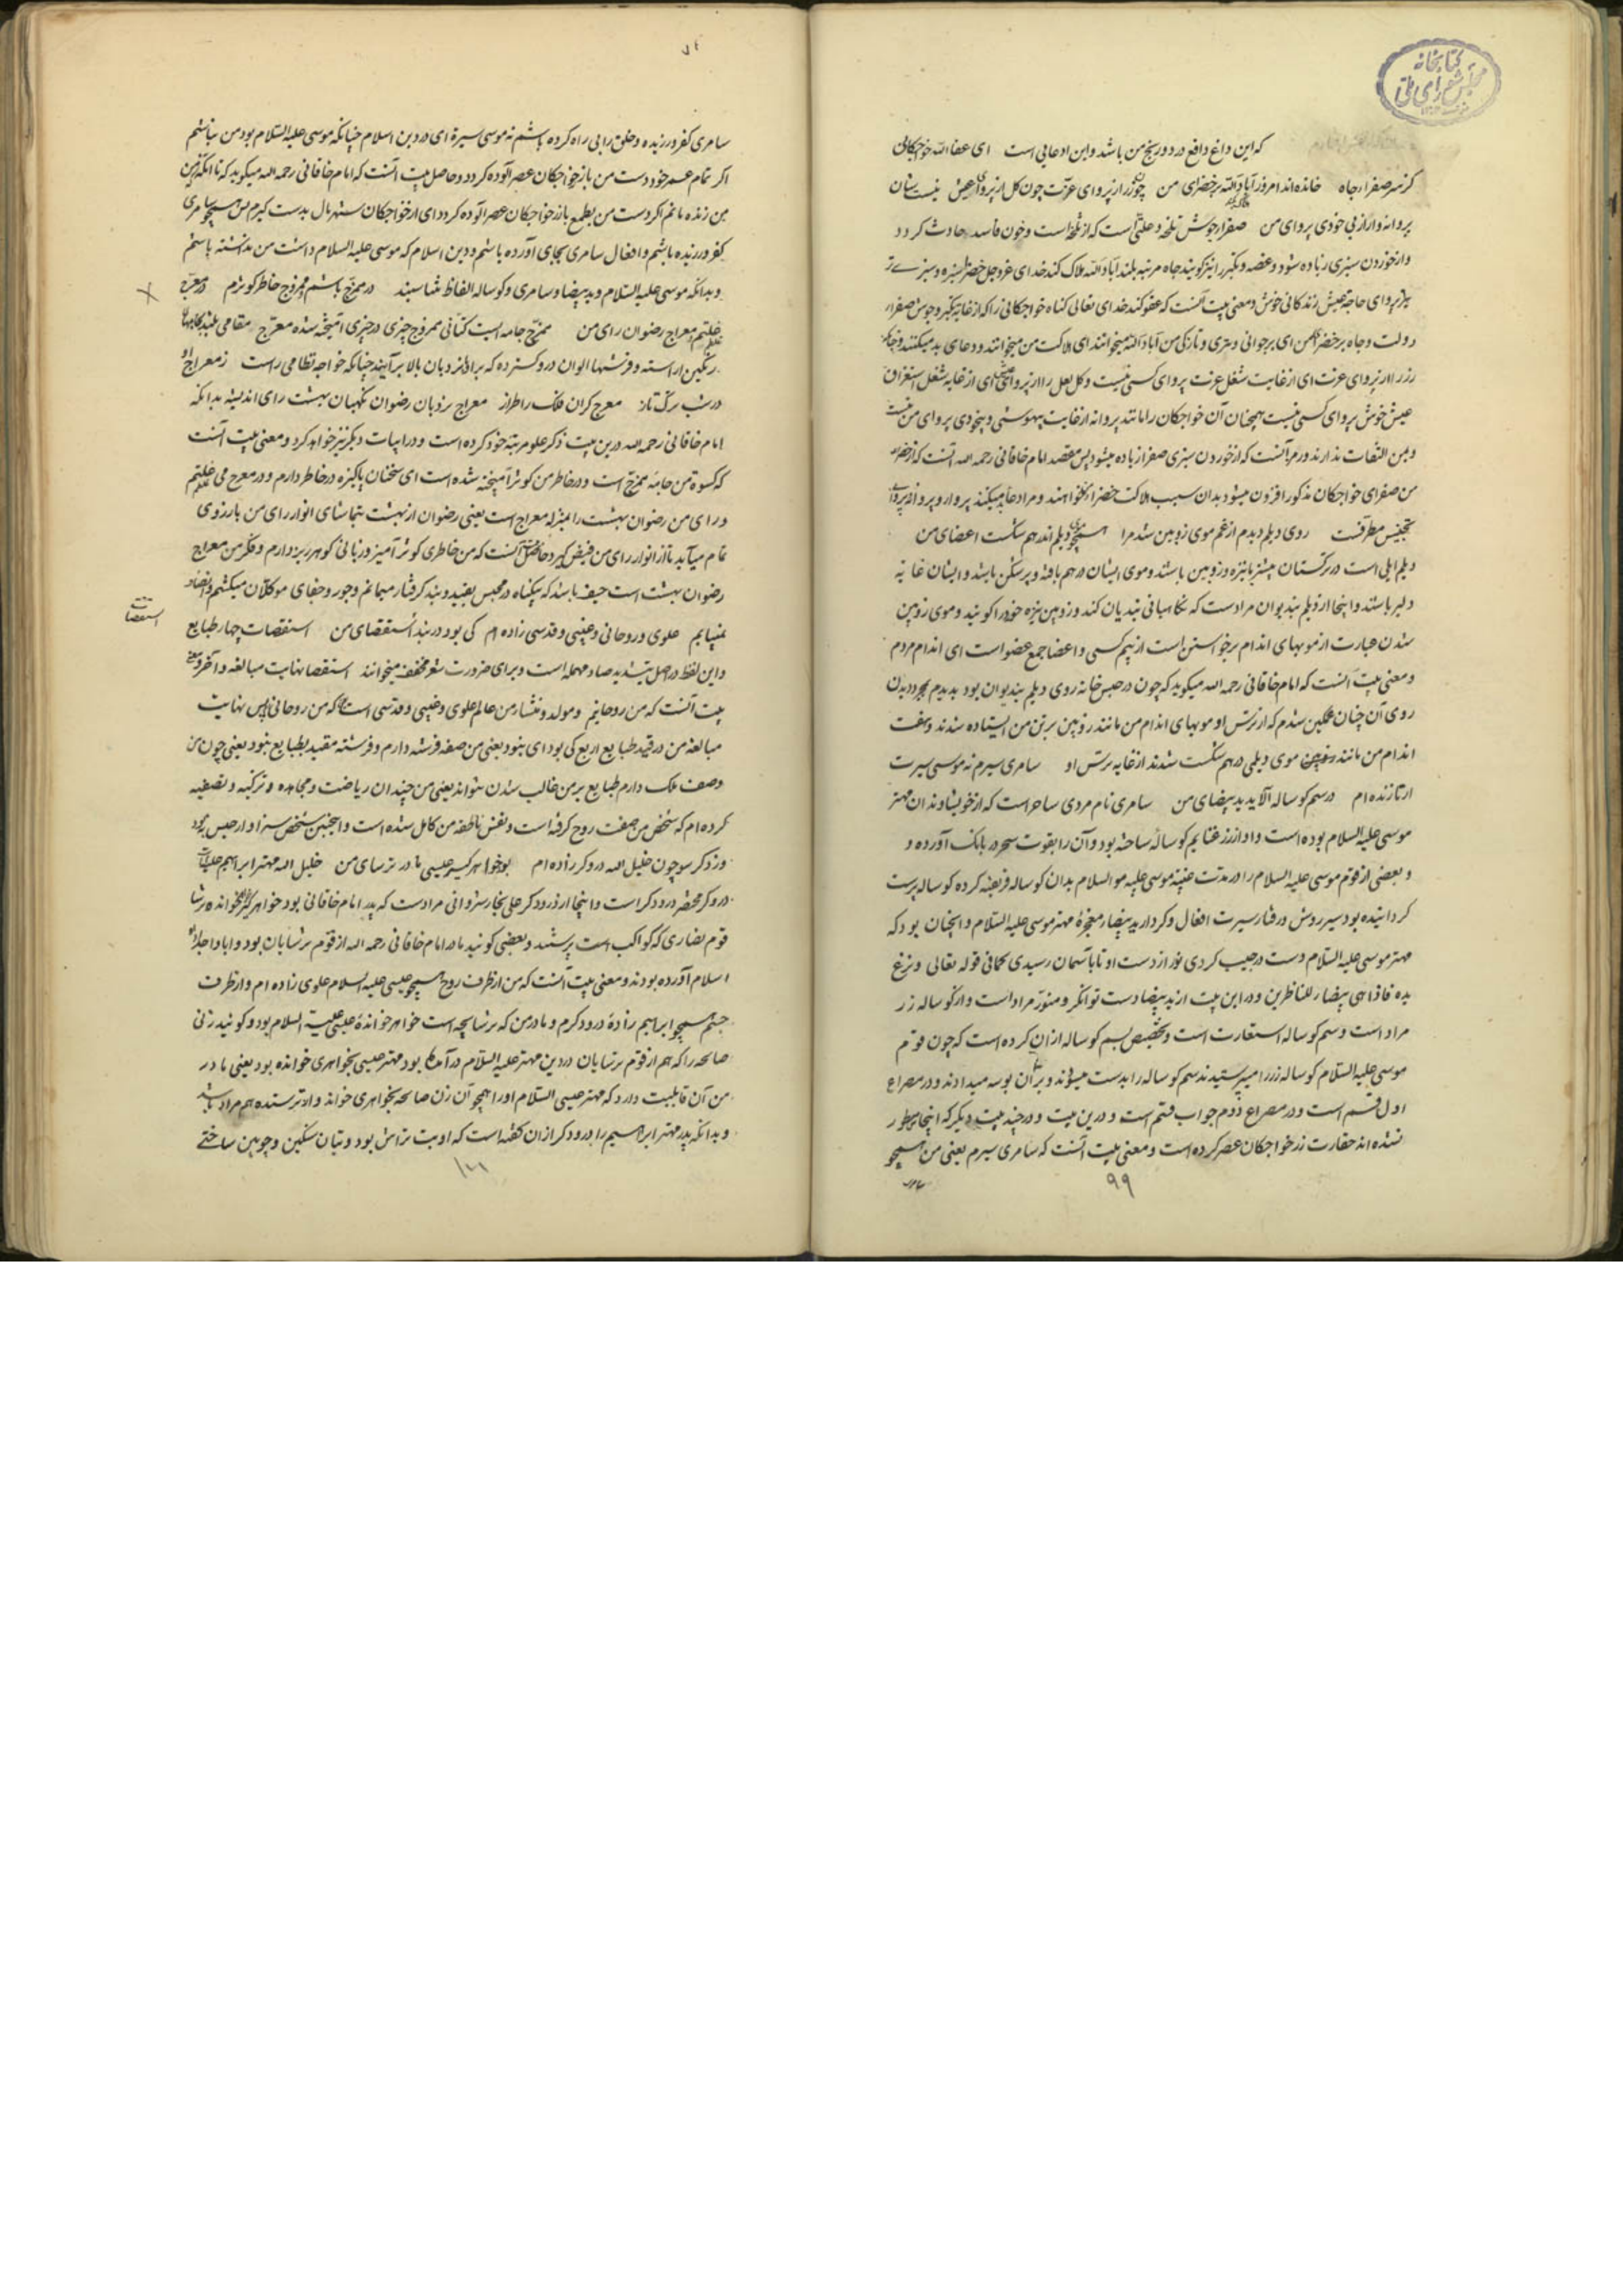 کتابخانه
مجلس شورای ملی
که این داغ دافع درد و رنج من باشد و این ادعایی است ای عفا الله خواجکانی
کز سر صفرا ء جاه خانده اند امروز آباد الله بر خضرای من چون زر از پروای عزت چون کل از پروای عیش نیست شان
پروانه وار از بی خودی پروای من صفرا ء جوش تلخه و علتی است که از تلخه است و خون فاسد حادث کردد
و از خوردن سبزی زیاده شود و غصه و تکبر را نیز کویند جاه مرتبه بلند آباد الله هلاک کند خدای عز و جل خضرا سبزه و سبزی تر
پروای حاجة عیش زندکانی خوش و معنی بیت آنست که عفو کند خدای تعالی کناه خواجکانی را که از غایة تکبر و جوش صفرا ء
دولت و جاه بر خضرای من ای بر جوانی و تری و تازکی من آباد الله میخوانند ای هلاکت من میخوانند و دعای بد میکنند و چنانکه
زر را از پروای عزت ای از غایت شغل عزت پروای کسی نیست و کل لعل را از پروای عیش ای از غایة شغل استغراق
عیش خوش پروای کسی نیست همچنان آن خواجکان را مانند پروانه از غایت بیهوشی و بیخودی پروای من نیست
و بمن التفات ندارند و رمز آنست که از خوردن سبزی صفرا زیاده میشود پس مقصد امام خاقانی رحمه الله آنست که از خضراء
من صفرای خواجکان مذکور افزون میشود بدان سبب هلاکت خضرا ء من خواهند و مراد دعا بد میکنند پروا و پروانه پروای
تجنیس مطرفست روی دیلم دیدم از غم موی زوبین شد مرا همچو موی دیلم اندر هم شکست اعضای من
دیلم اهلی است در ترکستان بیشتر با نیزه و زوبین باشند و موی ایشان در هم بافته و پر شکن باشد و ایشان غایة
دلیر باشند و اینجا از دیلم بندیوان مرادست که نکاهبانی بندیان کند و زوبین نیزه خورد را کویند و موی زوبین
شدن عبارت از مویهای اندام برخواستن است از بیم کسی و اعضا جمع عضو است ای اندام مردم
و معنی بیت آنست که امام خاقانی رحمه الله میکوید که چون در حبس خانه روی دیلم بندیوان بود بدیدم بمجرد دیدن
روی آن چنان غمکین شدم که از ترس او مویهای اندام من مانند زوبین بر تن من ایستاده شدند و هفت
اندام من مانند موی دیلمی در هم شکست شدند از غایه ترس او سامری سیرم نه موسی سیرت
ار تا زنده ام در سم کوساله آلاید ید بیضای من سامری نام مردی ساحر است که از خویشاوندان مهتر
موسی علیه السلام بوده است و او از زر غنایم کوساله ساخته بود و آن را بقوت سحر در بانک آورده و
و بعضی از قوم موسی علیه السلام را در مدت غیبة موسی علیه السلام بدان کوساله فریفته کرده کوساله پرست
کردانیده بود سیر روش و رفتار سیرت افعال و کردار ید بیضاء معجزهٔ مهتر موسی علیه السلام و آنچنان بود که
مهتر موسی علیه السلام دست در جیب کردی نور از دست او تا باآسمان رسیدی کما فی قوله تعالی و نزع
یده فاذا هی بیضاء للناظرین و در این بیت از ید بیضا دست توانکر و منور مراد است و از کوساله زر
مراد است و سم کوساله استعارت است و تخصیص بسم کوساله از ان کرده است که چون قوم
موسی علیه السلام کوساله زر را میپرستیدند سم کوساله را بدست میسودند و بر آن بوسه میدادند و در مصراع
اول قسم است و در مصراع دوم جواب قسم است و درین بیت و در چند بیت دیکر که اینجا مسطور
نشده اند حقارت زر خواجکان عصر کرده است و معنی بیت آنست که سامری سیرم یعنی من همچو
سامری
۹۹
سامری کفر ورزیده و خلق را بی راه کرده باشم نه موسی سیرة ای در دین اسلام چنانکه موسی علیه السلام بود من نباشم
اکر تمام عمر خود دست من بازر خواجکان عصر آلوده کردد و حاصل بیت آنست که امام خاقانی رحمه الله میکوید که تا انکه من
من زنده مانم اکر دست من بطمع بازر خواجکان عصر آلوده کردد ای از خواجکان ستر مال بدست کیرم پس همچو سامری
کفر ورزیده باشم و افعال سامری بجای آورده باشم و دین اسلام که موسی علیه السلام داشت من نداشته باشم
و بدانکه موسی علیه السلام و ید بیضا و سامری و کوساله الفاظ متناسبند در ممزج باشم و ممزوج خاطر کوثرم در معرج
غلتم و معراج رضوان رای من ممزج جامه ایست کتانی ممزوج چیزی در چیزی آمیخته شده معرج مقامی بلند بجامهای
رنکین اراسته و فرشهای الوان درو کسترده که برای نردبان بالا برآیند چنانکه خواجه نظامی راست ز معراج او
در شب ترک تاز معرج کران فلک را طراز معراج نردبان رضوان نکهبان بهشت رای اندیشه بدانکه
امام خاقانی رحمه الله درین بیت ذکر علو مرتبه خود کرده است و در ابیات دیکر نیز خواهد کرد و معنی بیت آنست
که کسوة من جامهٔ ممزج است و در خاطر من کوثر آمیخته شده است ای سخنان پاکیزه در خاطر دارم و در معرج می غلتم
و رای من رضوان بهشت را بمنزله معراج است یعنی رضوان از بهشت بتماشای انوار رای من بارزوی
تمام میآید تا از انوار رای من فیض کیرد حاصل آنست که من خاطری کوثر آمیز و زبانی کوهر ریز دارم و فکر من معراج
رضوان بهشت است حیف باشد که بیکناه در محبس بقید و بند کرفتار میمانم و جور و جفای موکلان میکشم
نمییابم علوی و روحانی و غیبی و قدسی زاده ام کی بود در بند استقصای من استقصات چهار طبایع
و این لفظ در اصل بتشدید صاد مهمله است و برای ضرورت شعر مخفف میخوانند استقصا نهایت مبالغه و آخر و معنی
بیت آنست که من روحانیم و مولد و منشاء من عالم علوی و غیبی و قدسی است که من روحانی پس نهایت
مبالغه من در قید طبایع اربع کی بود ای نبود یعنی من صفه فرشته دارم و فرشته مقید بطبایع نبود یعنی چون من
وصف ملک دارم طبایع بر من غالب شدن نتواند یعنی من چندان ریاضت و مجاهده و تزکیه و تصفیه
کرده ام که شخص من صفت روح کرفته است و نفس ناطقه من کامل شده است و اینچنین شخص سزاوار حبس نبود
وز دکر سو چون خلیل الله دروکر زاده ام بود خواهر کیر عیسی مادر ترسای من خلیل الله مهتر ابراهیم علیه السلام
دروکر مختصر درودکر است و اینجا از درودکر علی نجار شروانی مرادست که پدر امام خاقانی بود خواهر کیر خواهر خوانده ترسا
قوم نصاری که کواکب است پرستند و بعضی کویند مادر امام خاقانی رحمه الله از قوم ترسایان بود و ابا و اجداد او
اسلام آورده بودند و معنی بیت آنست که من از طرف روح همچو عیسی علیه السلام علوی زاده ام و از طرف
جسم همچو ابراهیم زادهٔ درودکرم و مادر من که ترسا بچه است خواهر خواندهٔ عیسی علیه السلام بود و کویند زنی
صالحه را که هم از قوم ترسایان در دین مهتر علیه السلام در آمده بود مهتر عیسی بخواهری خوانده بود یعنی مادر
من آن قابلیت دارد که مهتر عیسی السلام او را همچو آن زن صالحه بخواهری خواند و از ترسنده هم مراد باشد
و بدانکه پدر مهتر ابراهیم را درودکر از ان کفته است که او بت تراش بود و بتان سنکین و چوبین ساختی